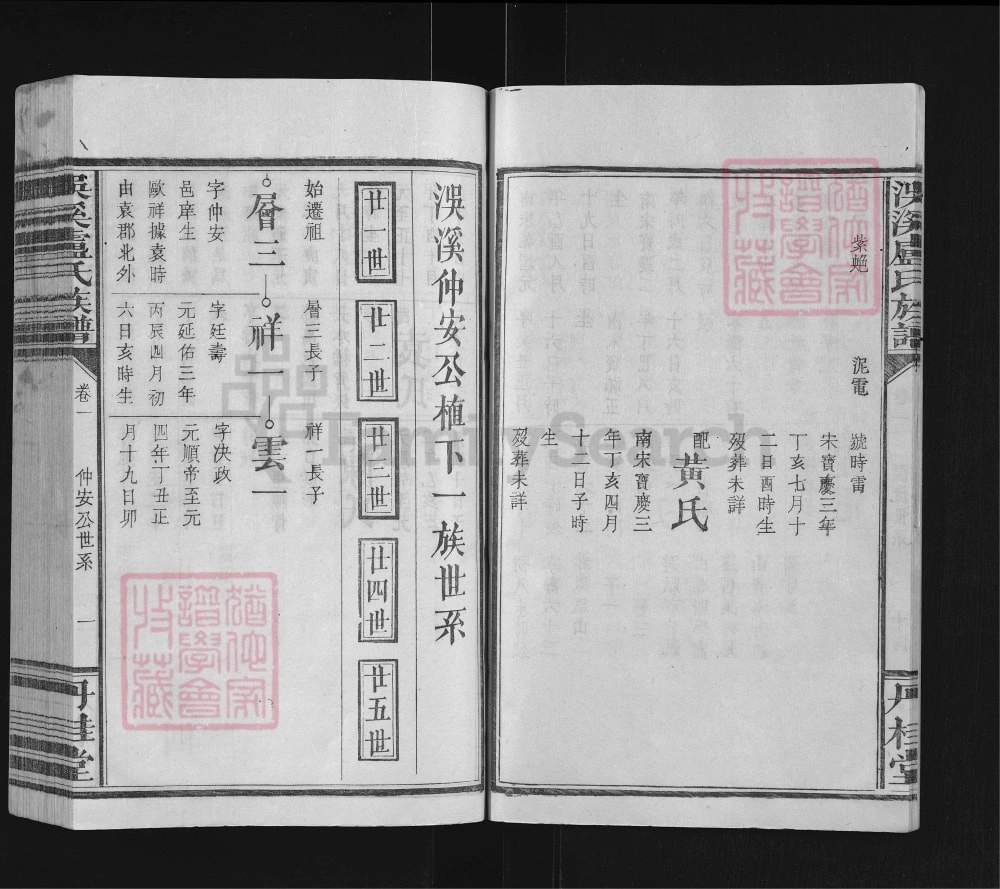 紫蜿
泥電
號時雷
宋寶慶三年
丁亥七月十
二日酉時生
歿葬未詳
配黃氏
南宋寶慶三
年丁亥四月
十二日子時
生
歿葬未詳
丹桂堂
洖溪仲安公植下一族世系
廿一世
廿二世
廿三世
廿四世
廿五世
始遷祖
層三
字仲安
邑庠生
歐祥據袁時
由袁郡北外
層三長子
祥一
字廷壽
元延佑三年
丙辰四月初
六日亥時生
祥一長子
雲一
字決政
元順帝至元
四年丁丑正
月十九日卯
盧氏族譜
卷一
仲安公世系
一
丹桂堂
FamilySearch
譜學會
收藏
譜學會
收藏